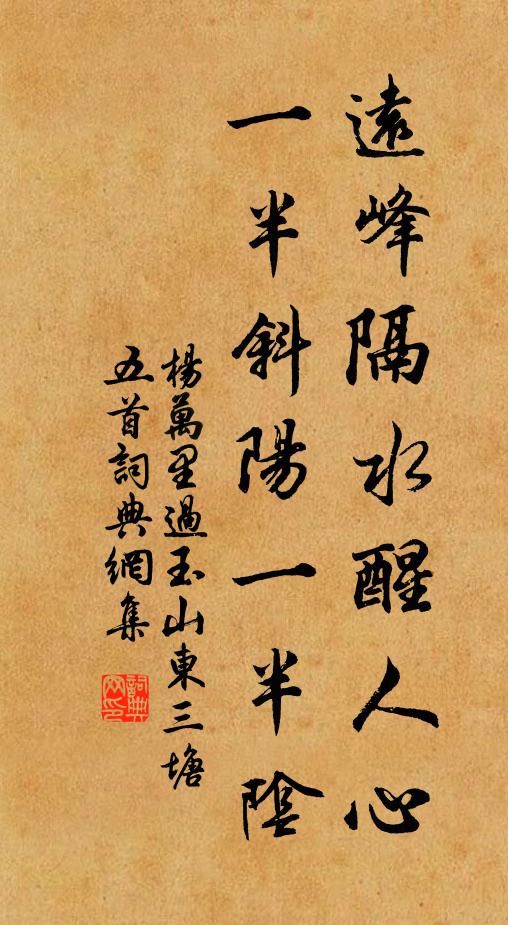 遠峰隔水醒人心
一半斜陽一半陰
楊萬里過玉山東三塘
五首詞典網集
詞典
网印